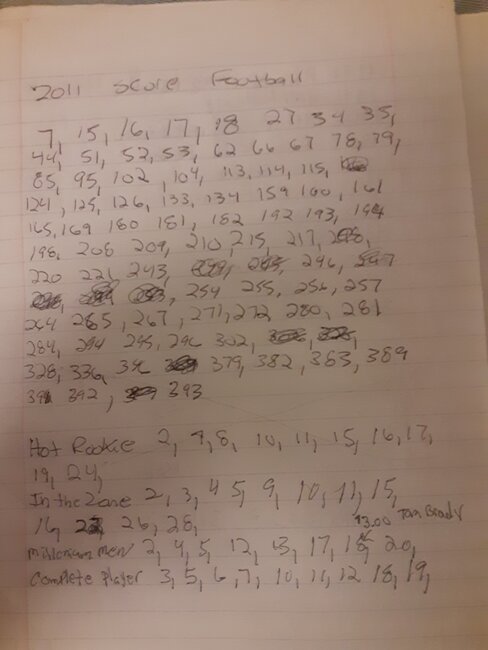 2011 Score Football
7, 15, 16, 17, 18 27 34 35,
44, 51, 52, 53, 62 66 67 78, 79,
85, 95, 102, 104, 113, 114, 115,
124, 125, 126, 133, 134 159 160, 161
165, 169 180 181, 182 192 193, 194
198, 208 209, 210, 215, 217,
220 221 243, 246,
254 255, 256, 257
264 265, 267, 271, 272 280, 281
284, 294 295, 296 302,
328, 336, 379, 382, 383, 389
391 392, 393
Hot Rookie 2, 7, 8, 10, 11, 15, 16, 17,
19, 24,
In the Zone 2, 3, 4 5, 9, 10, 11, 15,
16, 26, 28,
$3.00 Tom Brady
Millenium Men 2, 4, 5, 12, 13, 17, 18, 20,
Complete Player 3, 5, 6, 7, 10, 11, 12 18, 19,